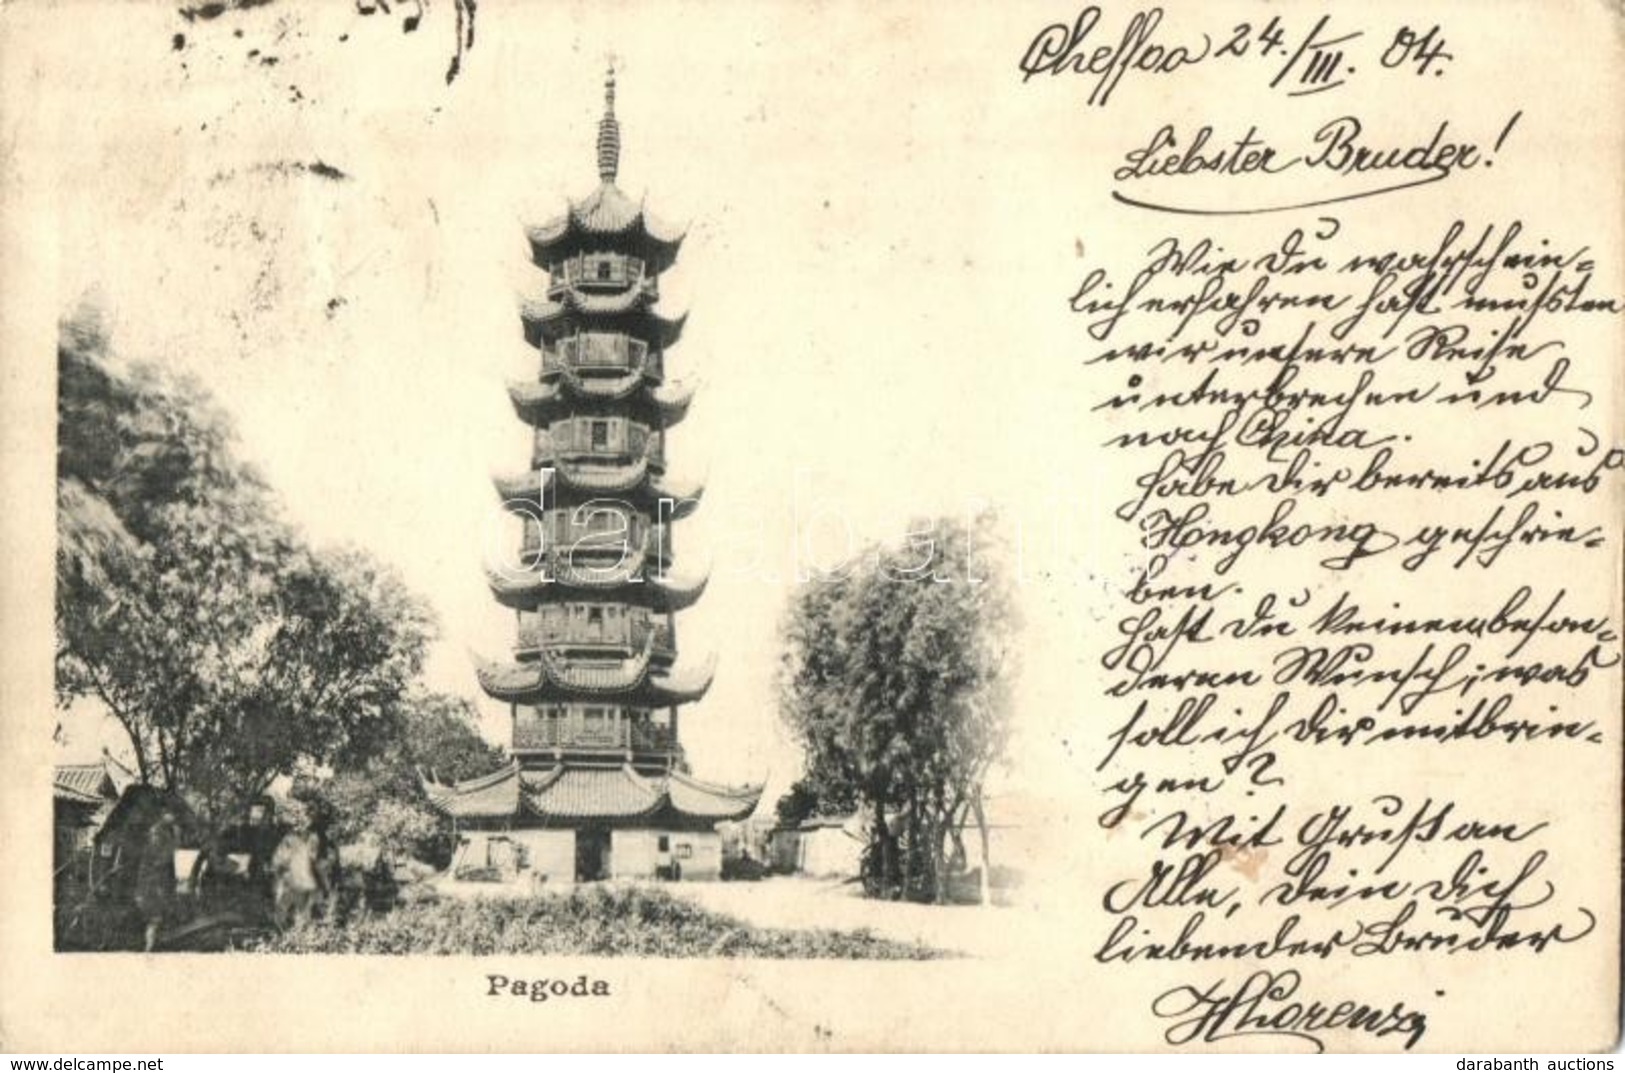 Cheffoo 24./III. 04.
Liebster Bruder!
Wie Du wahrschein-
lich erfahren hast mußten
wir unsere Reise
unterbrechen und
nach China.
Habe Dir bereits aus
Hongkong geschrie-
ben.
Hast Du keinen beson-
deren Wunsch; was
soll ich Dir mitbrin-
gen?
Mit Gruß an
Alle, Dein Dich
liebender Bruder
Pagoda
darabanth
© www.darabanth.com
darabanth auctions